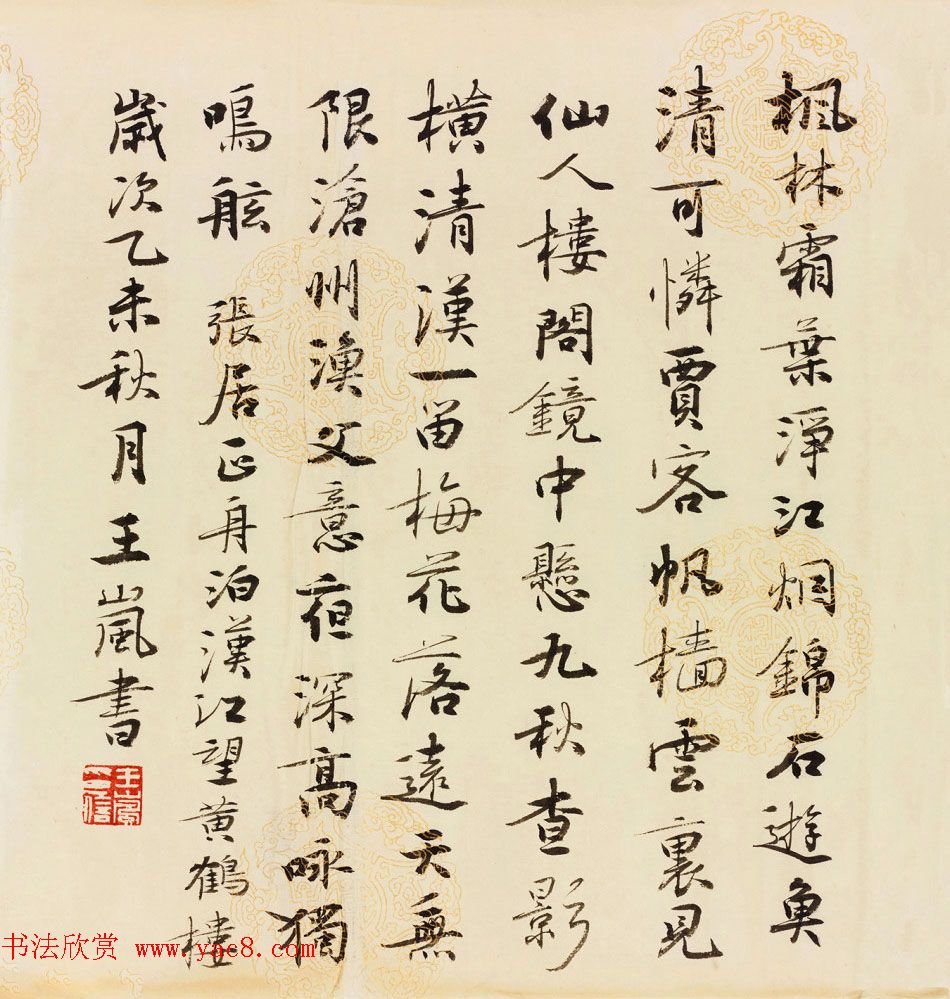 楓林霜葉淨江烟錦石遊魚
清可憐賈客帆檣雲裏見
仙人樓閣鏡中懸九秋查影
橫清漢一笛梅花落遠天無
限滄州漁父意夜深高咏獨
鳴舷 張居正舟泊漢江望黄鶴樓
歲次乙未秋月王嵐書
书法欣赏 www.yac8.com